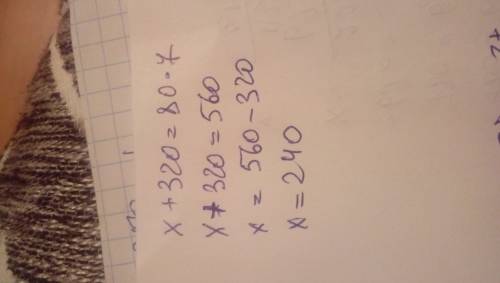 x + 320 = 80 · 7
x + 320 = 560
x = 560 - 320
x = 240